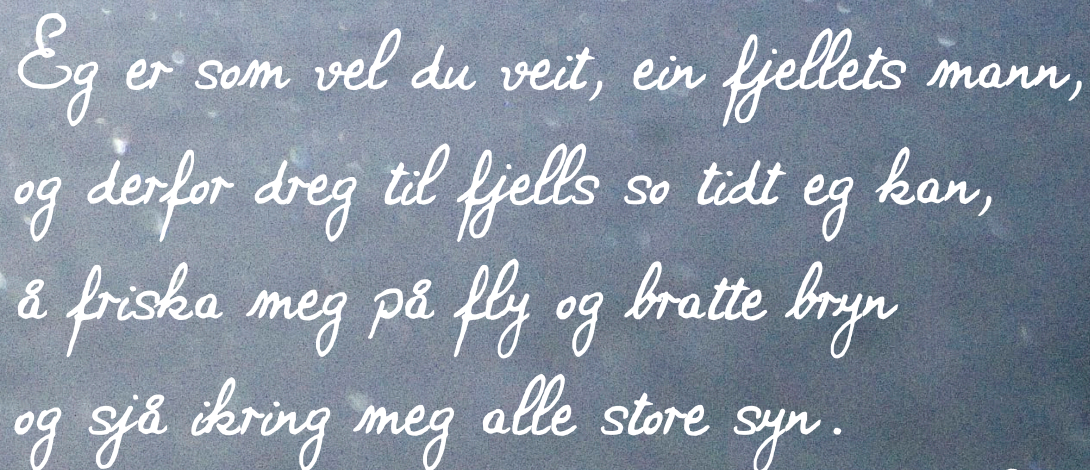 Eg er som vel du veit, ein fjellets mann,
og derfor dreg til fjells so tidt eg kan,
å friska meg på fly og bratte bryn
og sjå ikring meg alle store syn.